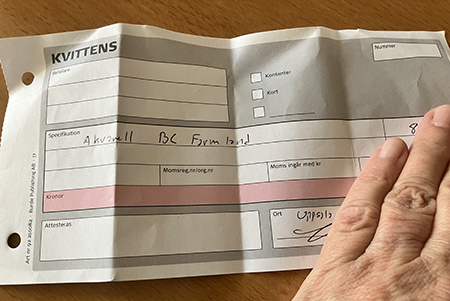 KVITTENS
Nummer
Betalare
Kontanter
Kort
Specifikation
Akvarell BC
8
Momsreg.nr/org.nr
Moms ingår med kr
Kronor
Attesteras
Ort
Uppsala
Burde Publishing AB